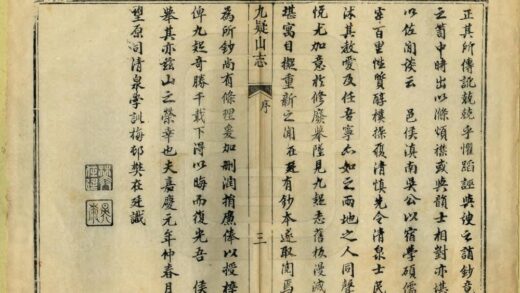 正其所傳訛兢兢乎懼蹈誣與俚之誚鈔
之篋中時出以滌煩襟或與韻士相對亦堪
以佐閒談云 邑侯滇南吳公以宿學碩儒
宰百里性質醇樸操履清慎先令清泉士民
沐其教愛及任吾寧亦如之兩地之人同聲
悅尤加意於修廢舉墜見九疑志舊板漫滅
堪寓目擬重新之聞在廷有鈔本遂取閱焉
九疑山志 序 三
為所鈔尚有條理爰加刪潤捐廉俸以授梓
俾九疑奇勝千載下得以晦而復光吾 侯
舉其亦茲山之榮幸也夫嘉慶元年仲春月
原司清泉學訓梅邨樊在廷識